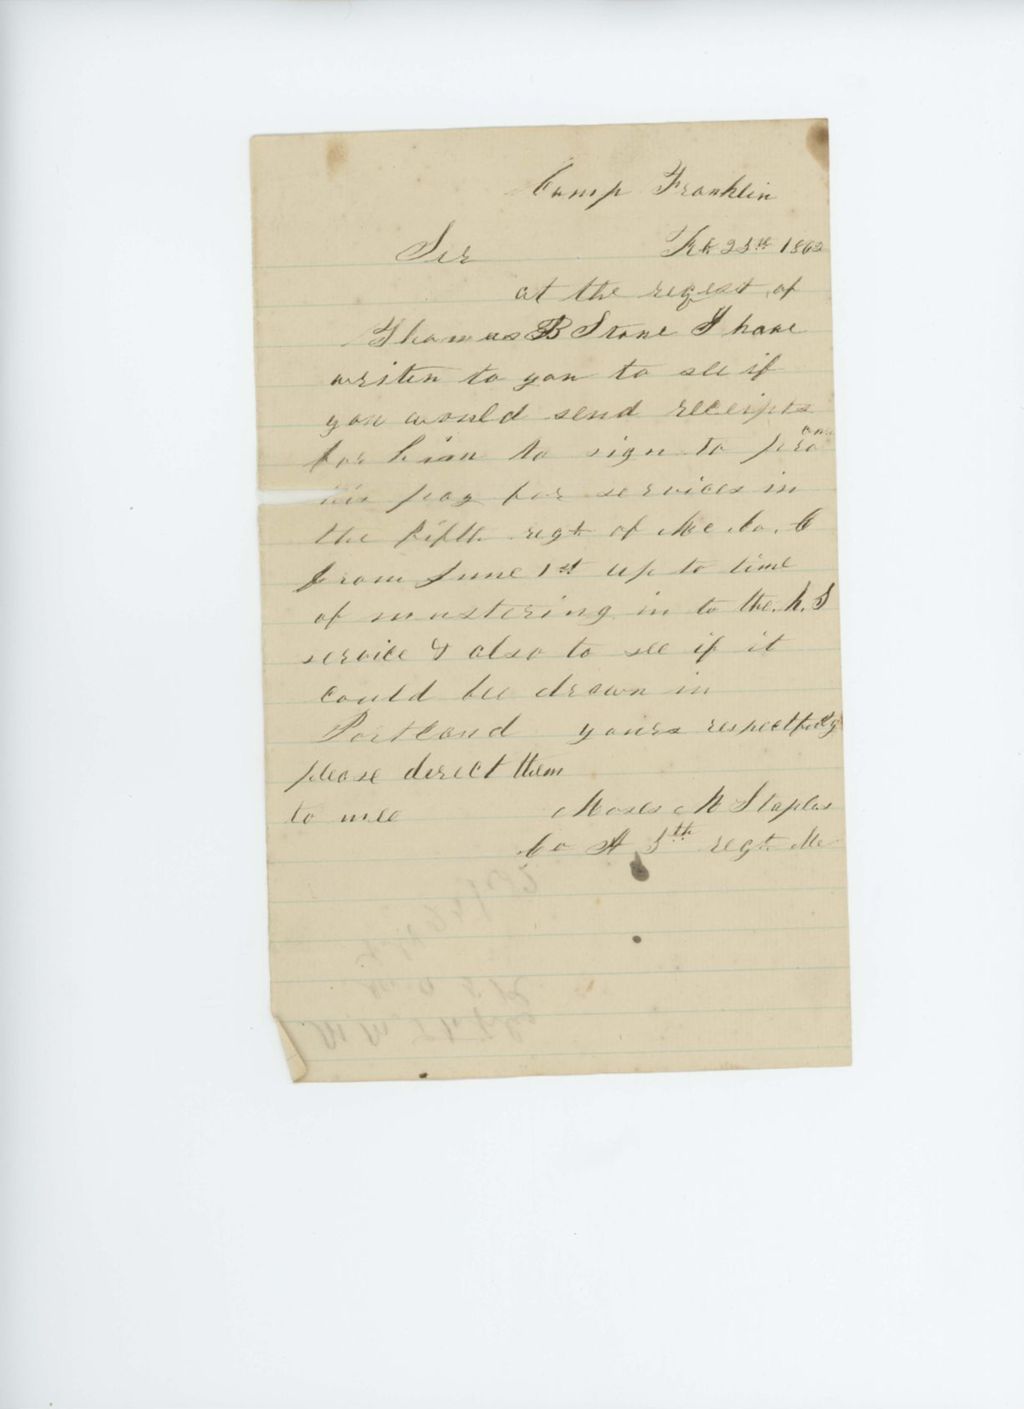 Camp Franklin
Sir Feb 25th 1862
at the reqest of
Thomas B Stone I have
writen to you to see if
you would send receipts
for him to sign to pro
cure
his pay for services in
the fifth regt of Me Co. C
from June 1st up to time
of mustering in to the U.S
service & also to see if it
could bee drawn in
Portland yours respectfully
please direct them
to mee Moses M Staples
Co A 5th regt Me